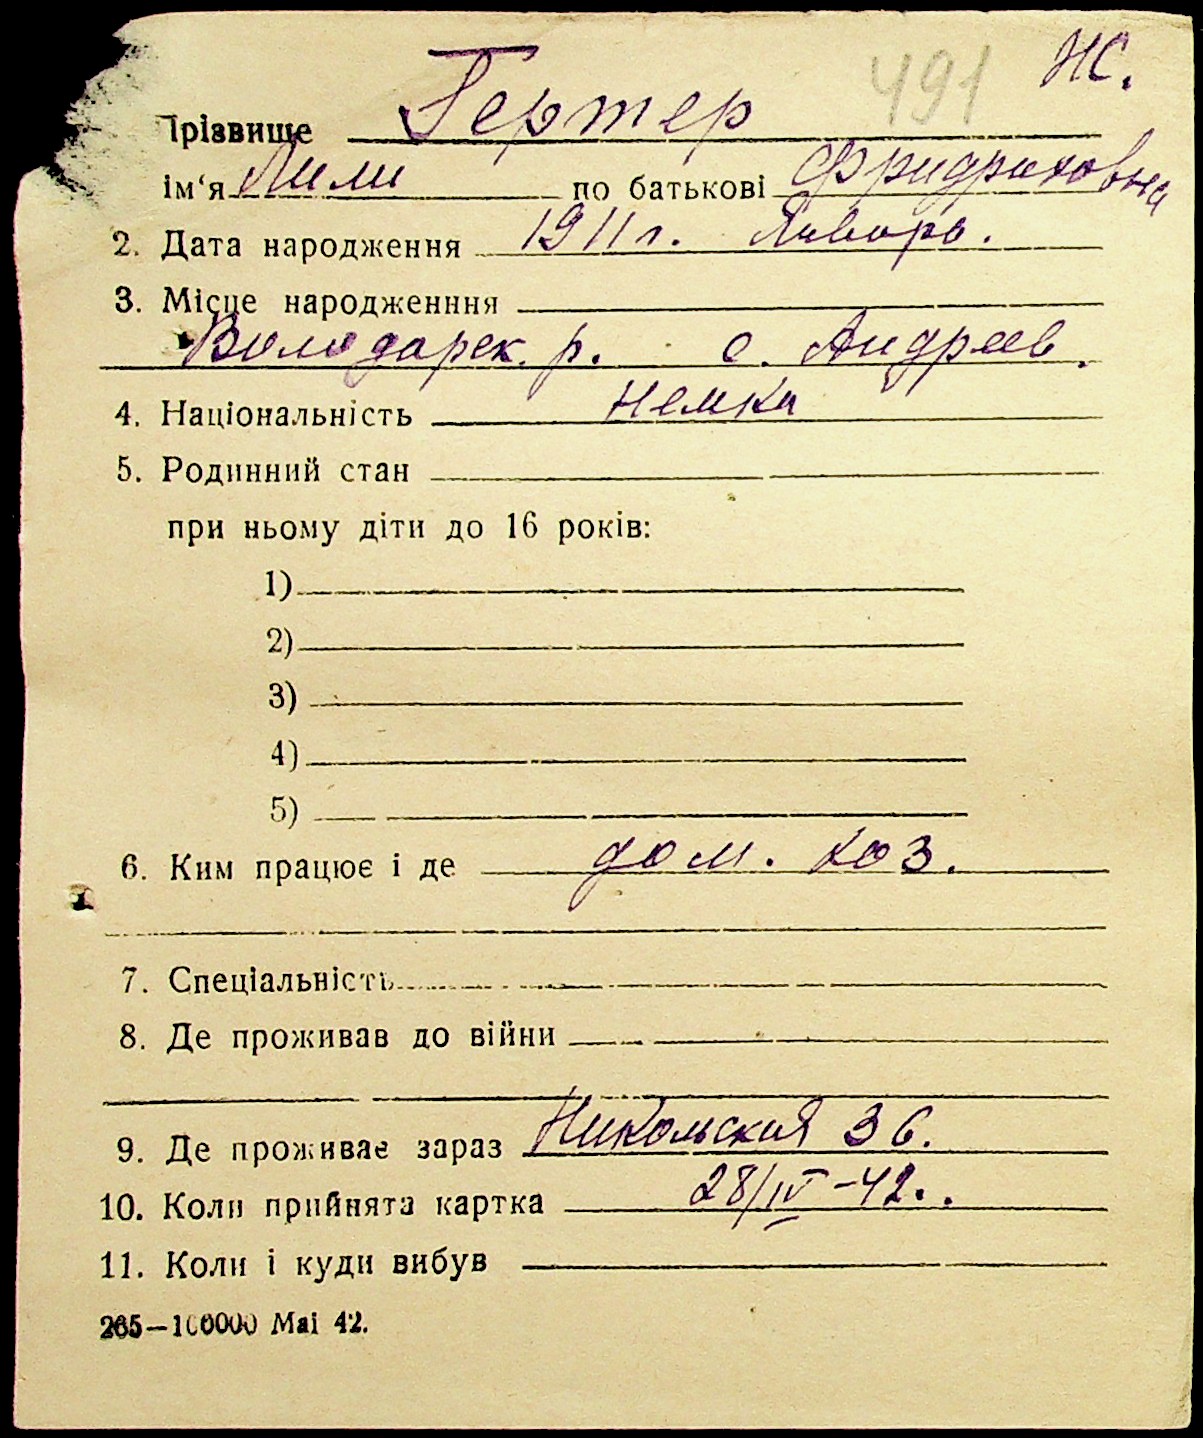 491 НС.
Прізвище Гертер
ім‘я Лили по батькові Фридриховна
2. Дата народження 1911 г. Январь.
3. Місце народженння
Володарск. р. с. Андреев.
4. Національність немка
5. Родинний стан
при ньому діти до 16 років:
1)
2)
3)
4)
5)
6. Ким працює і де дом. хоз.
7. Спеціальність
8. Де проживав до війни
9. Де проживає зараз Никольская 36.
10. Коли прийнята картка 28/IV-42.
11. Коли і куди вибув
265—100000 Маі 42.